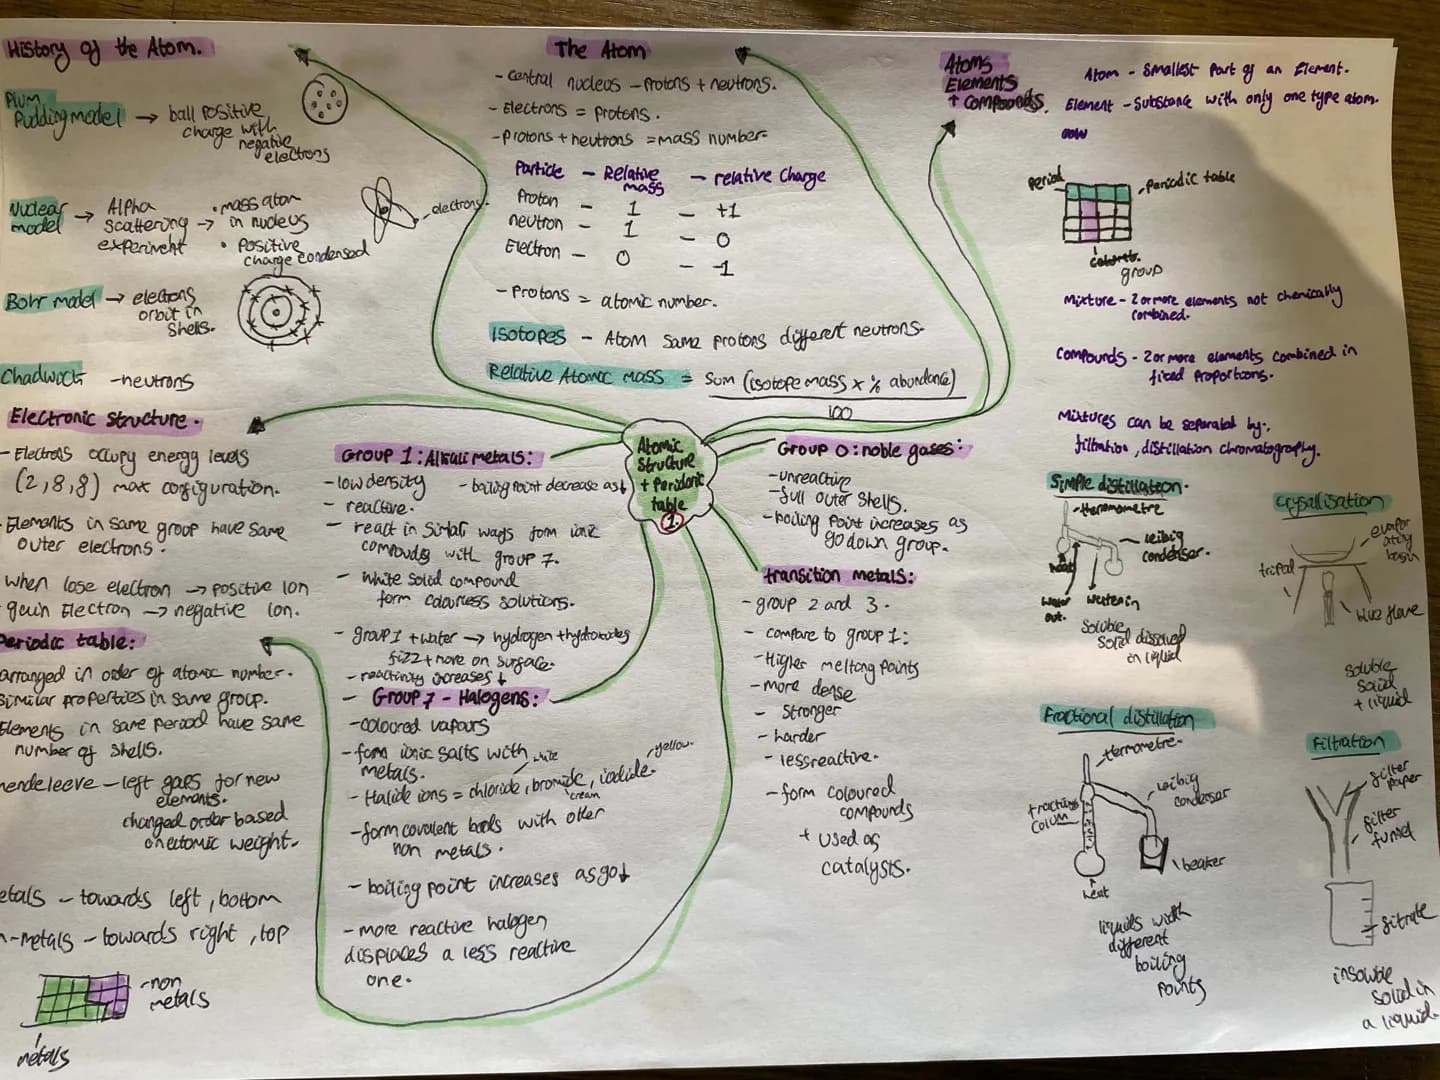 History of the Atom.
Plum
Pudding model → ball positive
charge with
negative
electrons
Nuclear
model → Alpha
scattering →
experiment
• mass atom
in nucleus
• positive
charge condensed
electrons.
Bohr model → electrons
orbit in
shells.
Chadwick - neutrons
The Atom
- Central nucleus - protons + neutrons.
- Electrons = protons.
- protons + neutrons = mass number
Particle - Relative mass - relative charge
Proton - 1 - +1
neutron - 1 - 0
Electron - 0 - -1
- Protons = atomic number.
Isotopes - Atom same protons different neutrons.
Relative Atomic mass = sum (isotope mass x % abundance)
100
Atoms
Elements
+ Compounds.
Atom - Smallest part of an Element.
Element - Substance with only one type atom.
period
- periodic table
group
Mixture - 2 or more elements not chemically
combined.
Compounds - 2 or more elements combined in
fixed proportions.
Mixtures can be separated by:
filtration, distillation chromatography.
Electronic structure.
- Electrons occupy energy levels
(2,8,8) max configuration.
- Elements in same group have same
outer electrons.
when lose electron → positive ion
gain Electron → negative ion.
Periodic table:
arranged in order of atomic number.
similar properties in same group.
Elements in same period have same
number of shells.
mendeleeve - left gaps for new
elements.
changed order based
on atomic weight.
etals - towards left, bottom
n-metals - towards right, top
- non
metals
metals
Atomic
Structure
+ Periodic
table
1.
Group 1: Alkali metals:
- low density
- boiling point decrease as ↓
- reactive.
- react in similar ways form ionic
compounds with group 7.
- white solid compound
form colourless solutions.
- group 1 + water → hydrogen + hydroxides
fizz + move on surface.
- reactivity increases ↓
- Group 7 - Halogens:
- coloured vapours
- form ionic salts with
metals.
white
yellow.
- Halide ions = chloride, bromide, iodide.
cream
- form covalent bonds with other
non metals.
- boiling point increases as go ↓
- more reactive halogen
displaces a less reactive
one.
Group 0: noble gases:
- unreactive
- full outer shells.
- boiling point increases as
go down group.
transition metals:
- group 2 and 3.
- compare to group 1:
- Higher melting points
- more dense
- Stronger
- harder
- less reactive.
- form coloured
compounds
+ used as
catalysts.
Simple distillation.
- thermometre
- leibig
condenser.
heat
water
out.
water in
soluble
solid dissolved
in liquid
Crystallisation
evapor
ating
basin
tripod
blue flame
soluble
solid
+ liquid
Fractional distillation
- thermometre.
leibig
condenser
colum
- beaker
heat
liquids with
different
boiling
points
Filtration
filter
paper
filter
funnel
filtrate
insoluble
solid in
a liquid.